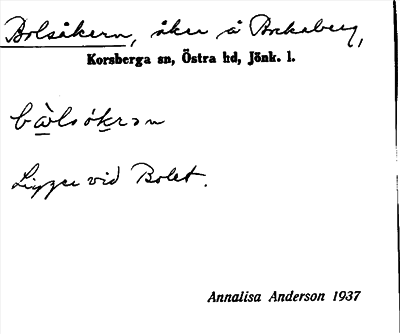 Bolsåkern, åker å Bockaberg,
Korsberga sn, Östra hd, Jönk. l.
bɷ̀lsókrən
Ligger vid Bolet.
Annalisa Anderson 1937